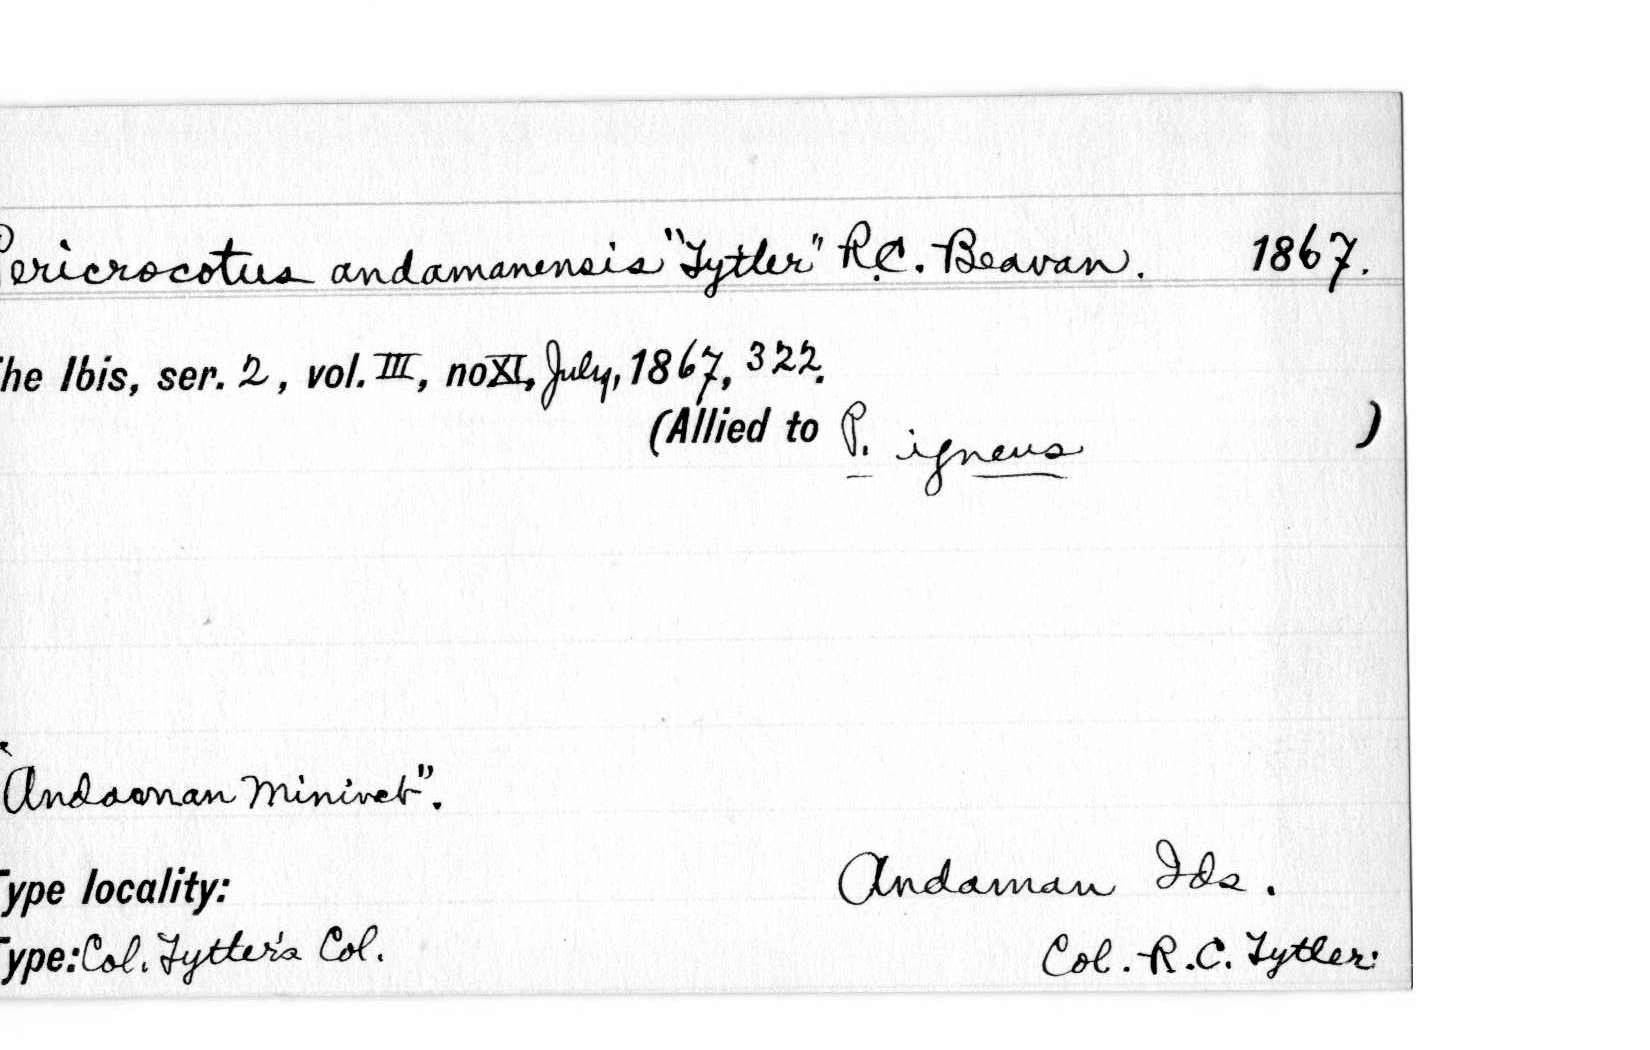 Pericrocotus andamanensis "Tytler" R.C. Beavan. 1867.
The Ibis, ser. 2, vol. III, no XI, July, 1867, 322.
(Allied to P. igneus )
"Andaman Minivet".
Type locality: Andaman Ids.
Type: Col. Tytler's Col. Col. R.C. Tytler.